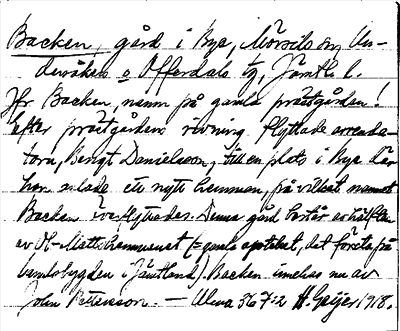 Backen, gård i Bye, Mörsils sn, Un-
dersåkers o Offerdals tg, Jämtl. l.
Jfr Backen, namn på gamla prästgården!
Efter prästgårdens rivning flyttade arrenda-
torn, Bengt Danielsson, till en plats i Bye där
han inlade ett nytt hemman, på vilket namnet
Backen överflyttades. Denna gård består av hälften
av Ol-Mattshemmanet (= gamla apoteket, det första på
landsbygden i Jämtland). Backen innehas nu av
John Pettersson. — Ulma 36 7:2 H. Geijer 1918.